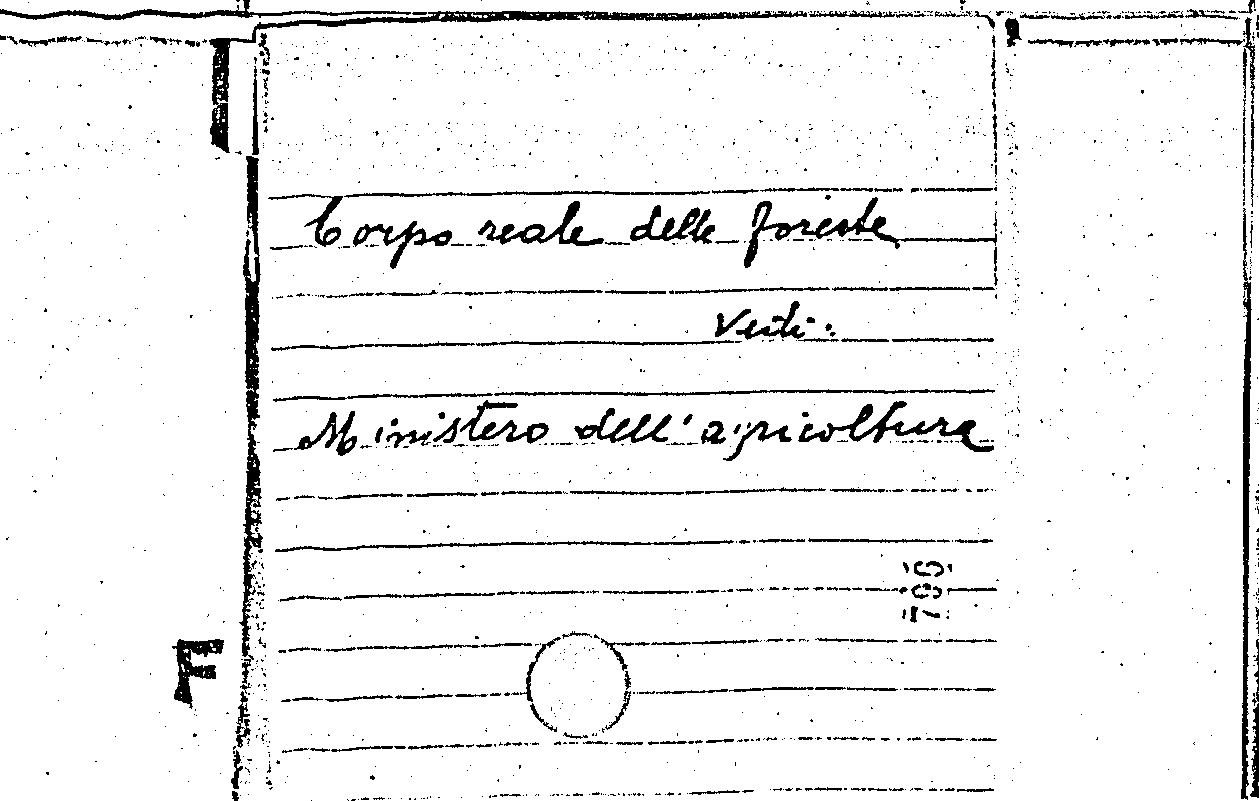 Corpo reale delle foreste
Vedi:
Ministero dell'agricoltura
F